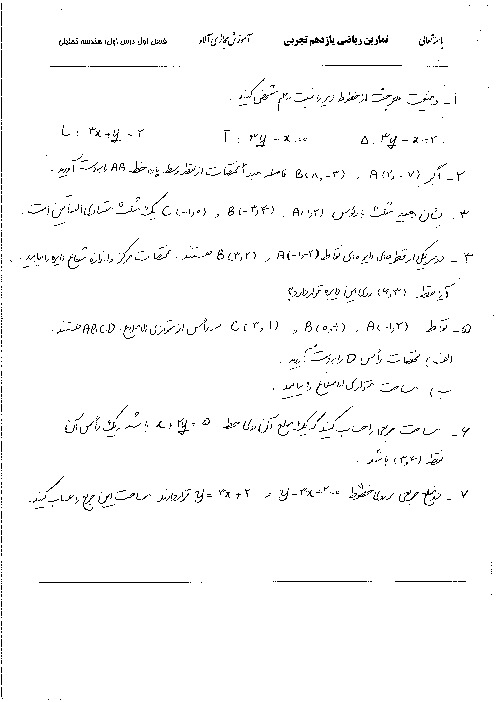 باسمه‌تعالی تمارین ریاضی یازدهم تجربی آموزش مجازی آلاء فصل اول درس اول: هندسه تحلیلی
۱- وضعیت هر جفت از خطوط زیر را نسبت به هم مشخص کنید.
L: ۳x+y=۲ T: ۳y-x=۰ Δ: ۳y-x+۲=۰
۲- اگر A(۲,-۷) و B(۸,-۳) فاصله مبدأ مختصات از نقطه وسط پاره خط AB را بدست آورید.
۳- نشان دهید مثلث به رؤس A(۱,۲) و B(-۳,۴) و C(-۱,۰) یک مثلث متساوی الساقین است.
۴- دو سر یکی از قطرهای دایره‌ای نقاط A(-۱,-۲) و B(۳,۲) هستند. مختصات مرکز و اندازه شعاع دایره را بیابید.
آیا نقطه (۶,۳) روی این دایره قرار دارد؟
۵- نقاط A(-۱,۲) و B(۰,۴) و C(۳,۱) سه رأس از متوازی الاضلاع ABCD هستند.
الف) مختصات رأس D را بدست آورید.
ب) مساحت متوازی الاضلاع را بیابید.
۶- مساحت مربعی را حساب کنید که یک ضلع آن روی خط x+۲y=۵ باشد و یک رأس آن
نقطه (۳,۴) باشد.
۷- دو ضلع مربعی بر روی خطوط y-۳x+۲=۰ و y=۳x+۲ قرار دارند مساحت این مربع را حساب کنید.